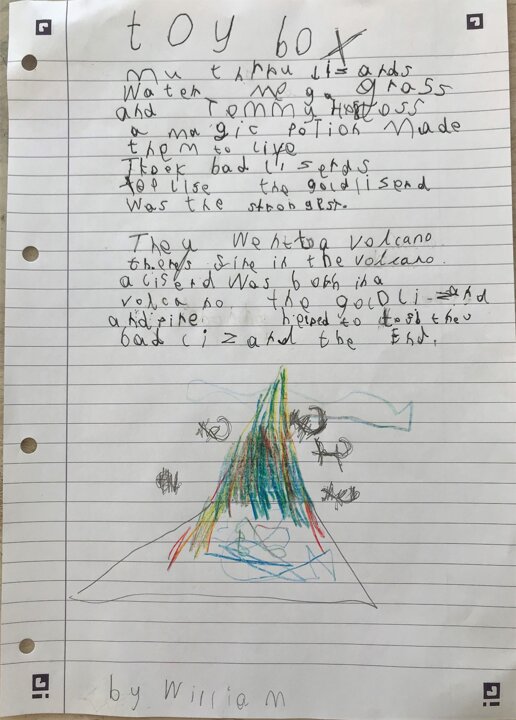 toy box
Mu thrhu lizards
Water Meg, grass
and Tommy Hotoss
a magic poTion Made
them to live
Threek bad lizerds
the goldlisend
was the strongest.
They wentto a volcano
theres fire in the volcano.
a liserd was born in a
volcano. the goLD Lizand
andfire helped to
bad Lizand the End.
by William